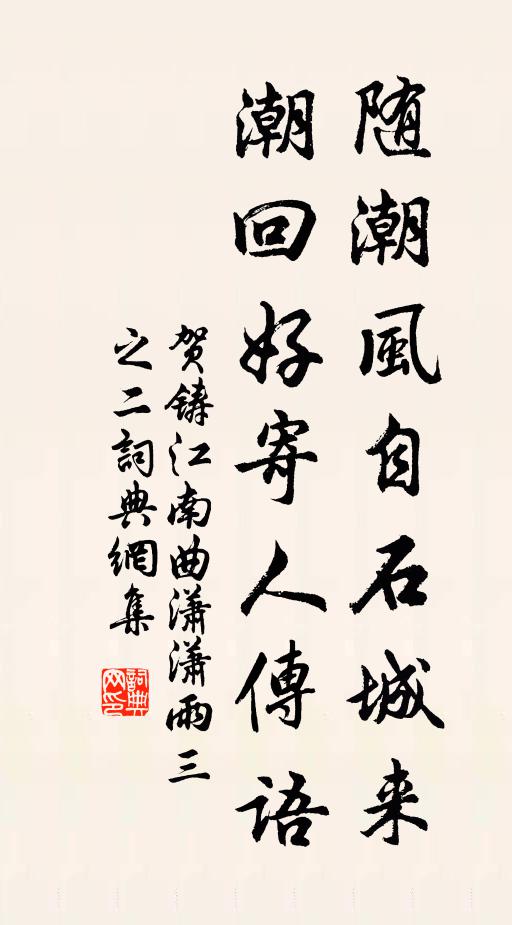 随潮風自石城来
潮回好寄人傳语
贺鑄江南曲潇潇雨三
之二詞典網集
詞典网印